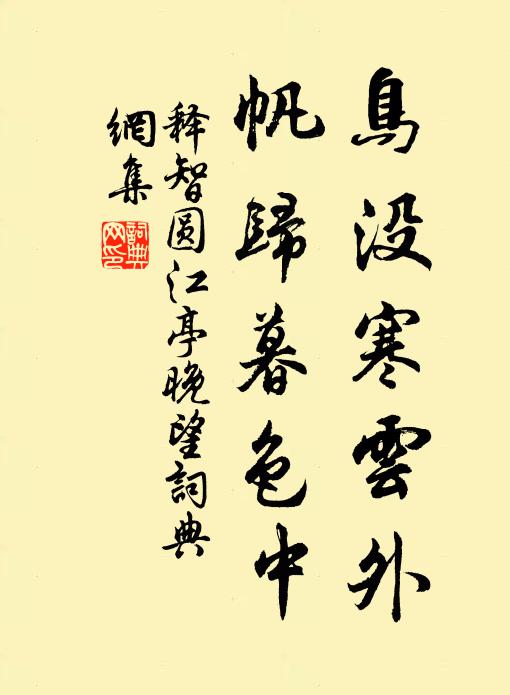 鳥没寒雲外
帆歸暮色中
释智圆江亭晚望詞典
網集
詞典
网印